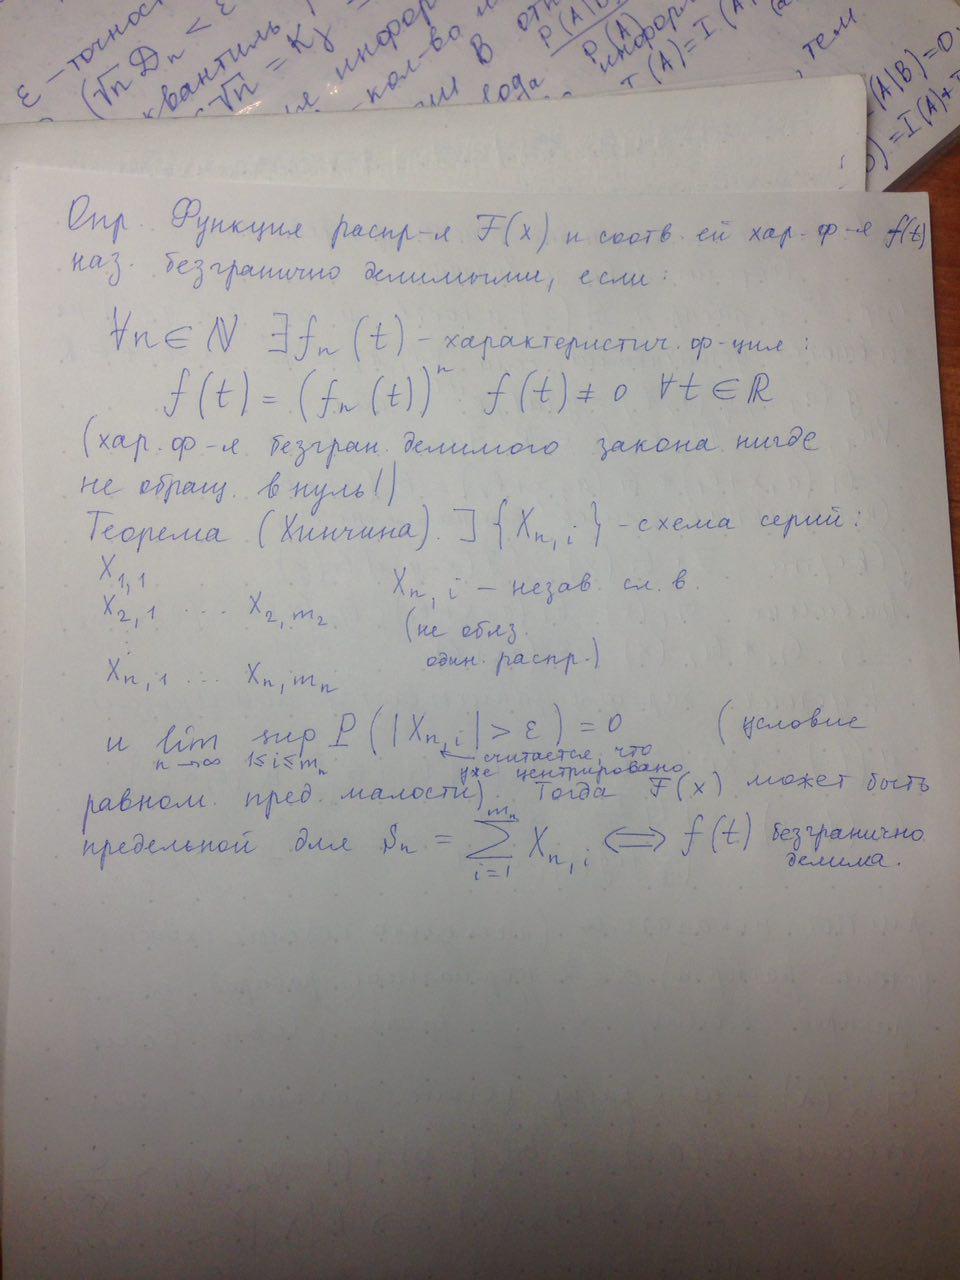 ε – точнос
(√n Dₙ < ε
квантиль
√n = Kγ
кол-во
P(A|B)
P(A)
(A|B) = 0,
) = I(A) +
тем
Опр. Функция распр-я F(x) и соотв. ей хар. ф-я f(t)
наз. безгранично делимыми, если:
∀n ∈ ℕ ∃ fₙ(t) – характеристич. ф-ция:
f(t) = (fₙ(t))ⁿ f(t) ≠ 0 ∀t ∈ ℝ
(хар. ф-я безгран. делимого закона нигде
не обращ. в нуль!)
Теорема (Хинчина). ∃ {Xₙ,ᵢ} – схема серий:
X₁,₁
X₂,₁ ... X_{2,m₂}
⋮
Xₙ,₁ ... X_{n,mₙ}
Xₙ,ᵢ – незав. сл. в.
(не обяз.
один. распр.)
и lim sup P(|Xₙ,ᵢ| > ε) = 0 (условие
n→∞ 1≤i≤mₙ
← считается, что
уже центрировано
равном. пред. малости). Тогда F(x) может быть
предельной для Sₙ = ∑_{i=1}^{mₙ} Xₙ,ᵢ ⟺ f(t) безгранично
делима.